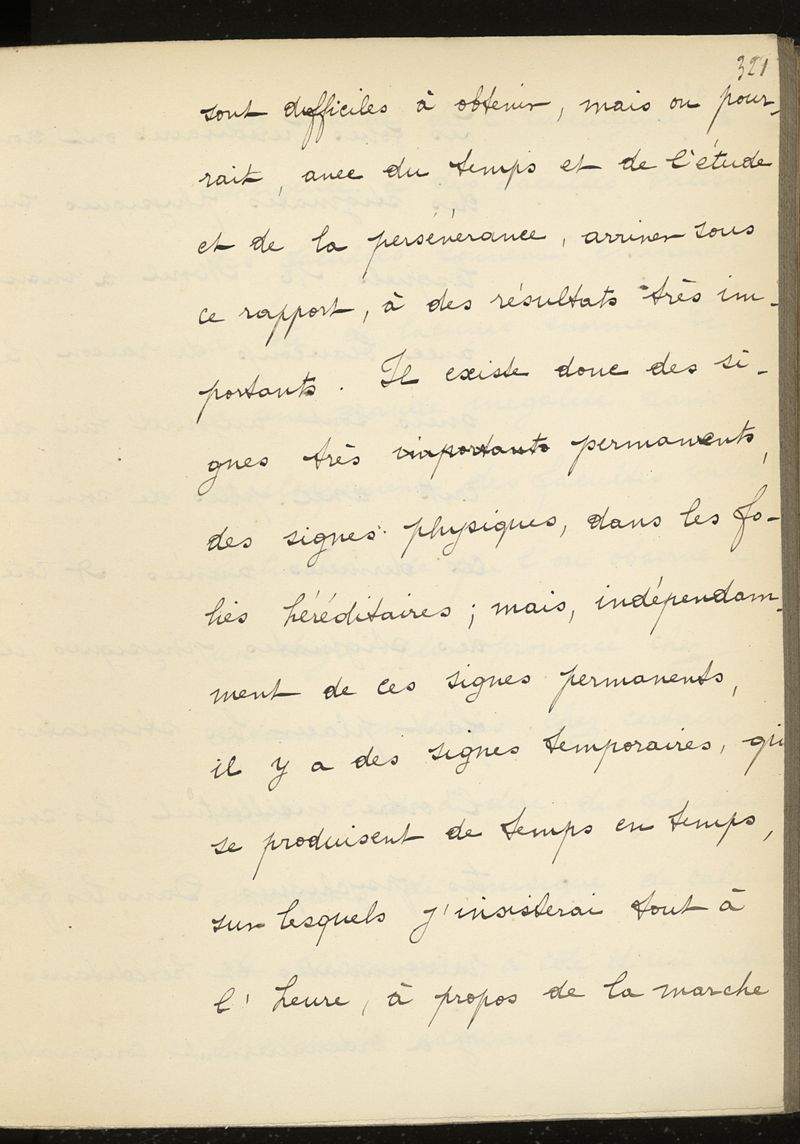 321
sont difficiles à obtenir, mais on pour-
rait, avec du temps et de l'étude
et de la persévérance, arriver sous
ce rapport, à des résultats très im-
portants. Il existe donc des si-
gnes très importants permanents,
des signes physiques, dans les fo-
lies héréditaires ; mais, indépendam-
ment de ces signes permanents,
il y a des signes temporaires, qui
se produisent de temps en temps,
sur lesquels j'insisterai tout à
l'heure, à propos de la marche